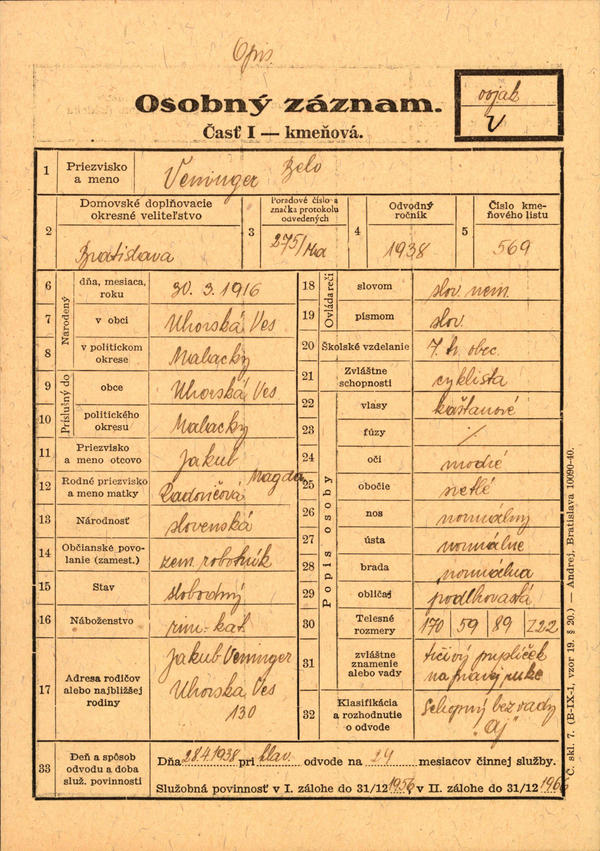 Opis
Osobný záznam.
Časť I — kmeňová.
vojak
V
1 Priezvisko a meno Veninger Belo
2 Domovské doplňovacie okresné veliteľstvo Bratislava
3 Poradové číslo a značka protokolu odvedených 275/Ma
4 Odvodný ročník 1938
5 Číslo kmeňového listu 569
Narodený
6 dňa, mesiaca, roku 30. 3. 1916
7 v obci Uhorská Ves
8 v politickom okrese Malacky
Príslušný do
9 obce Uhorská Ves
10 politického okresu Malacky
11 Priezvisko a meno otcovo Jakub
12 Rodné priezvisko a meno matky Radoničová Magda
13 Národnosť slovenská
14 Občianske povolanie (zamest.) zem. robotník
15 Stav slobodný
16 Náboženstvo rim.-kat.
17 Adresa rodičov alebo najbližšej rodiny Jakub Veninger
Uhorska Ves
130
Ovláda reči
18 slovom slov. nem.
19 písmom slov.
20 Školské vzdelanie 7. tr. obec.
21 Zvláštne schopnosti cyklista
Popis osoby
22 vlasy kaštanové
23 fúzy ⁒
24 oči modré
25 obočie svetlé
26 nos normálny
27 ústa normálne
28 brada normálna
29 obličaj podlhovastá
30 Telesné rozmery 170 59 89 Z22
31 zvláštne znamenie alebo vady
na pravej ruke
32 Klasifikácia a rozhodnutie o odvode Schopný bez vady
"Aj"
33 Deň a spôsob odvodu a doba služ. povinnosti
Dňa 28.4.1938 pri hlav. odvode na 24 mesiacov činnej služby.
Služobná povinnosť v I. zálohe do 31/12 1956, v II. zálohe do 31/12 1966
Č. skl. 7. (B-IX-1, vzor 19. § 20.) — Andrej, Bratislava 10090-40.